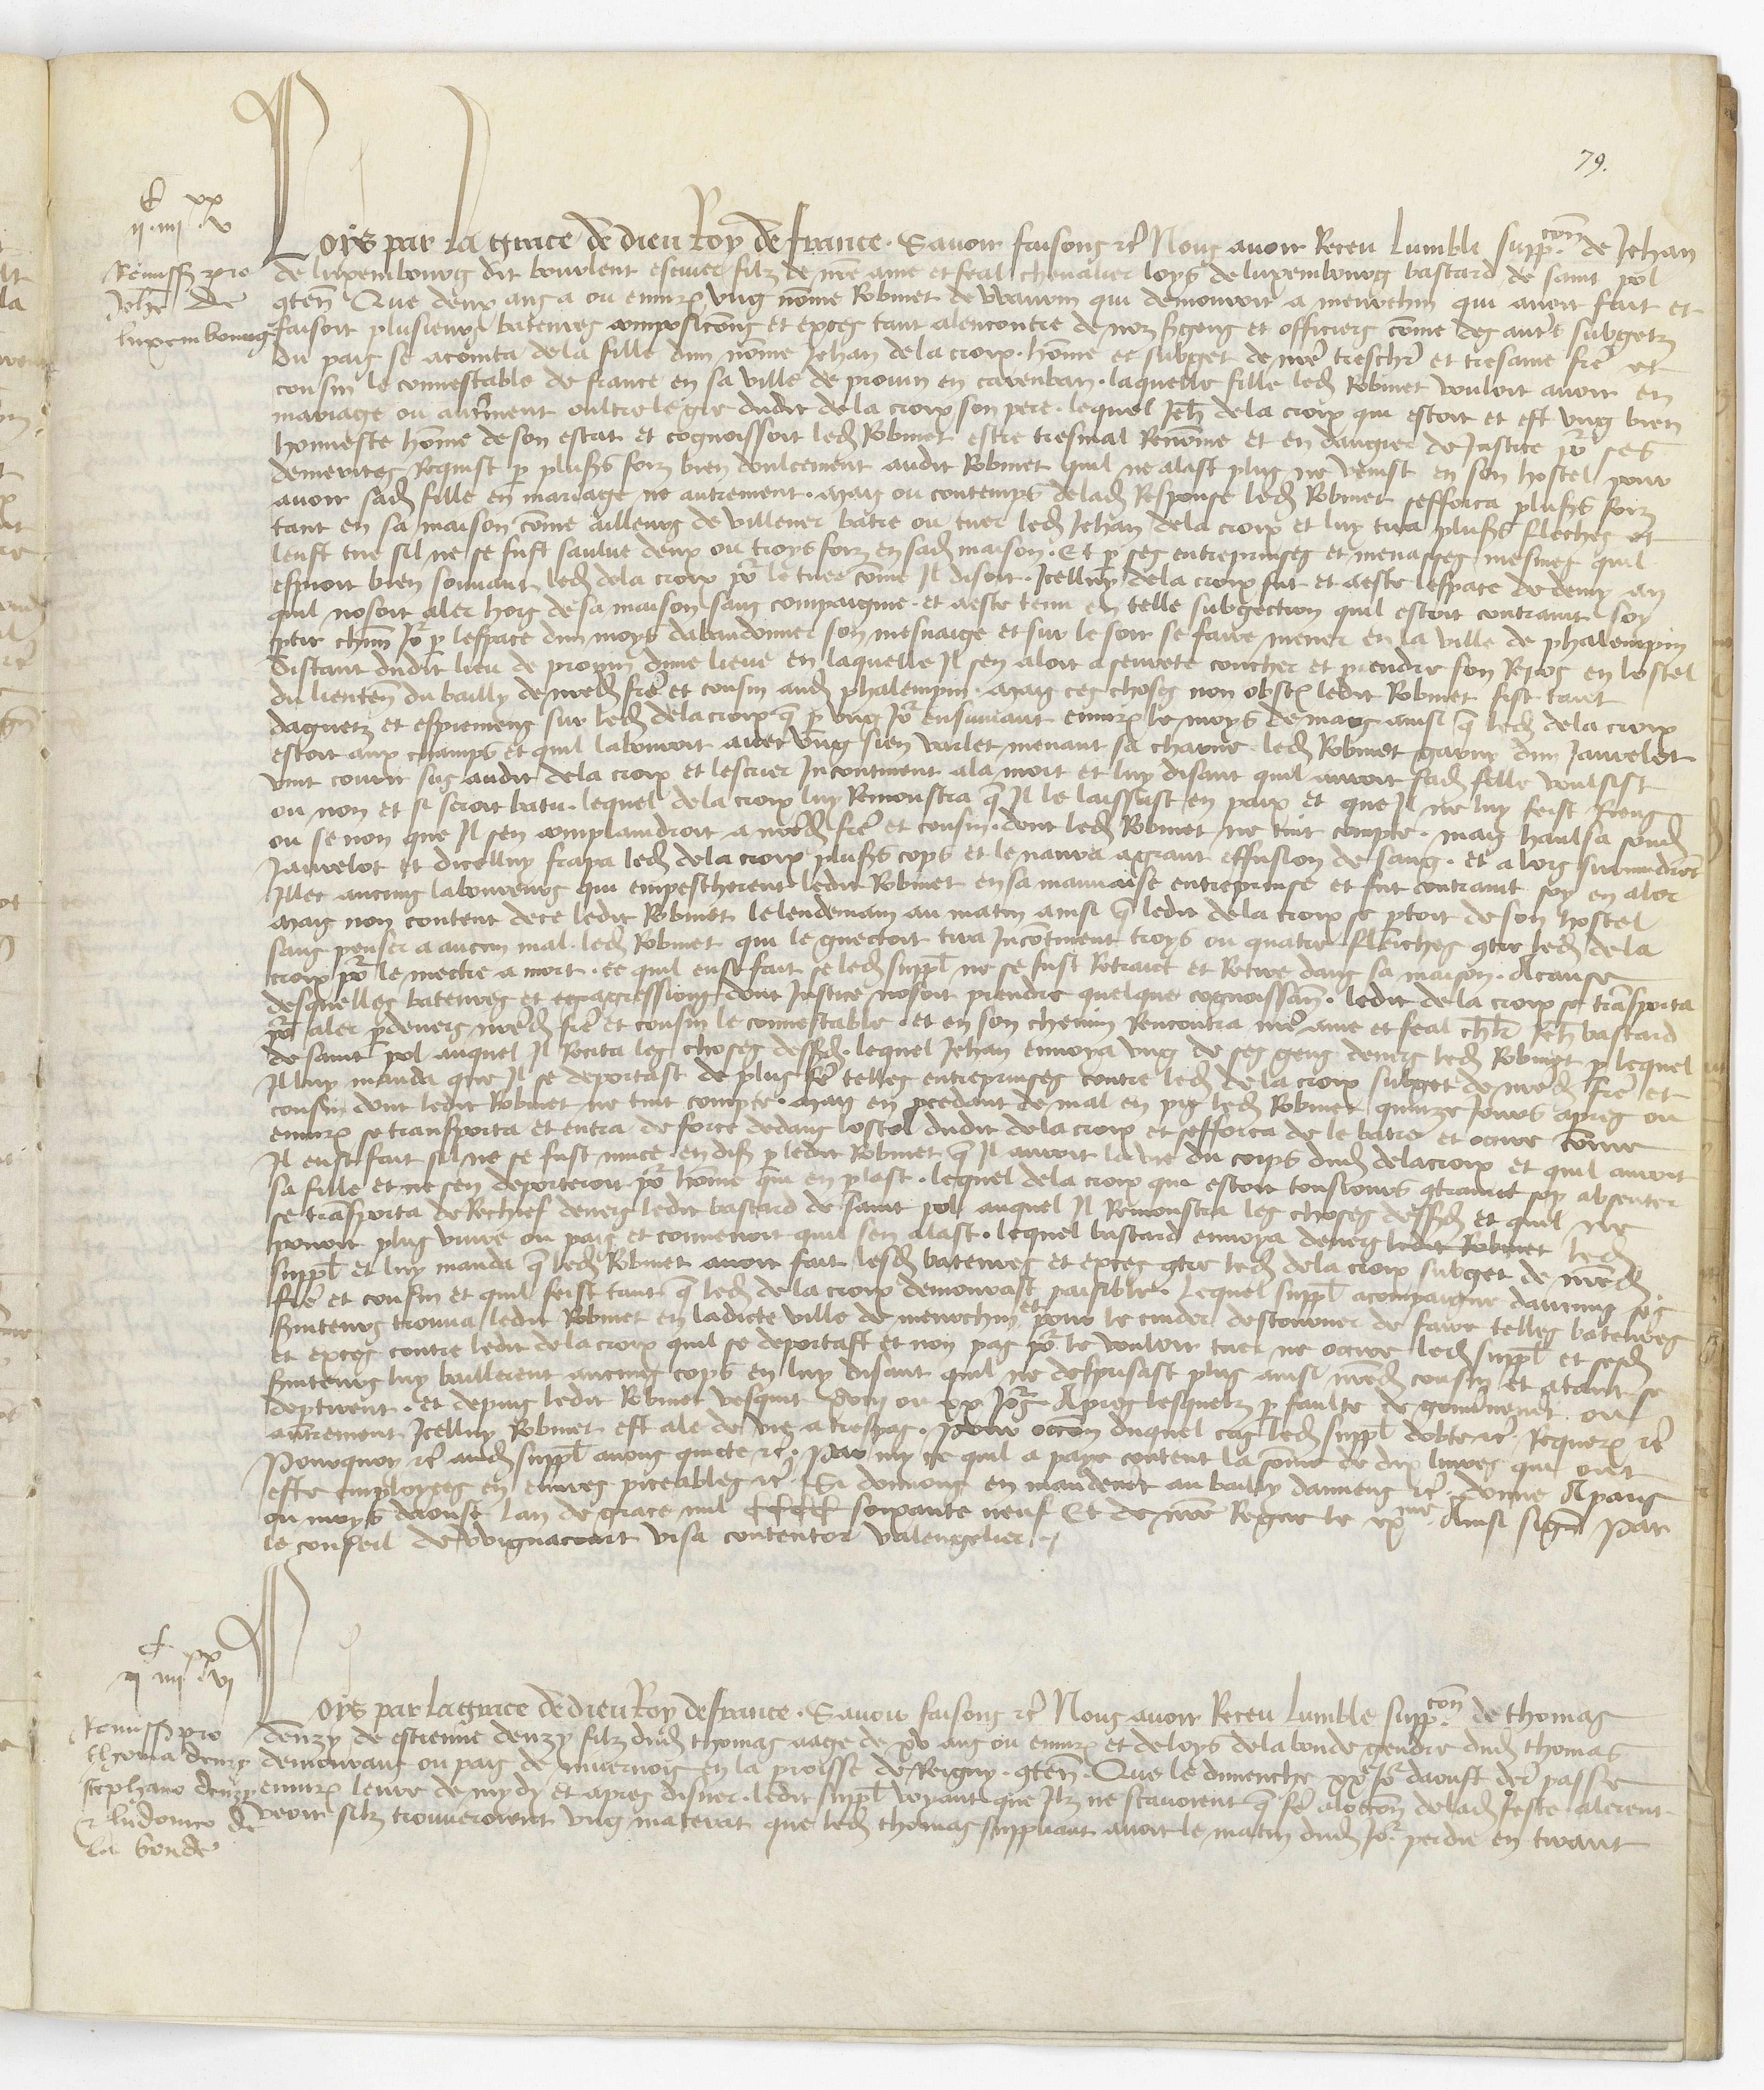 79.
C xx
ii iiii v
Remissio pro
Johanne de
luxembourg
Loys par la grace de dieu Roy de france. Savoir faisons etc Nous avoir Receu lumble supp.cion de Jehan
de luxembourg dit bourlent escuier filz de nre ame et feal chevalier loys de luxembourg bastard de saint pol
conten Que deux ans a ou environ ung nomme Robinet de Wavrin qui demouroit a mervehin qui avoit fait et
faisoit plusieurs bateures composicons et exces tant alencontre de noz sergens et officiers come des autres subgetz
du pais se acointa de la fille dun nome Jehan delacroix. home et subget de nre treschr et tresame fre et
cousin le connestable de france en sa ville de provin en carenban. laquelle fille led Robinet vouloit avoir en
mariage ou autrment oultre le gre dudit delacroix son pere. lequel Jeh delacroix qui estoit et est ung bien
honneste home de son estat et cognoissoit led Robinet estre tresmal Renome et en dangier de Justice por ses
demerites Requist par plusrs foiz bien doulcement audit Robinet quil ne alast plus ne venist en son hostel pour
avoir sad fille en mariage ne autrement. mais ou contemps de lad Response led Robinet sefforca plusrs foiz
tant en sa maison come ailleurs de villener batre ou tuer led Jehan delacroix et luy tira plusrs fleches et
leust tue sil ne se fust sauve deux ou troys foiz en sad maison. Et par ses entreprinses et menasses mesmes quil
espioit bien souvant led dela croix por le tuer come Il disoit. Icelluy dela croix fut et a este lespace de demy an
quil nosoit aler hors de sa maison sans compaignie. et a este tenu en telle subgection quil estoit contraint soy
partir chun Jor par lespace dun moys dabandonner son mesnaige et sur le soir se faire mener en la ville de phalempin
distant dudit lieu de provin dune lieue en laquelle Il sen aloit a seurete coucher et prendre son Repos en lostel
du lieuten du bailly de nred fre et cousin aud phalempin. mais ces choses non obst ledit Robinet fist tant
daguetz et espiemens sur led delacroix que par ung Jor ensuivant environ le moys de mars ainsi que led delacroix
estoit aux champs et quil labouroit avec ung sien varlet menant sa charue. led Robinet garny dun Javelot
vint courir sus audit dela croix et lescrier Incontinent a la mort et luy disant quil auroit sad fille voulsist
ou non et si seroit batu. lequel delacroix luy Remonstra que Il le laissast en paix et que Il ne luy feist Riens
ou se non que Il sen complaindroit a nred fre et cousin. dont led Robinet ne tint compte. mais haulsa sond
Javelot et dicelluy frapa led delacroix plusrs cops et le navra a grant effusion de sang. et alors survindrent
Illec aucuns laboureurs qui empescherent ledit Robinet en sa mauvaise entreprinse et fut contraint soy en aler
mais non content de ce ledit Robinet lelendemain au matin ainsi que ledit dela croix se partoit de son hostel
sans penser a aucun mal. led Robinet qui le guectoit tira Incontinent troys ou quatre fleiches contre led dela
croix por le mectre a mort. ce quil eust fait se led suppl ne se fust Retraict et Retire dans sa maison. A cause
desquelles bateures et egragressions dont Justice nosoit prendre quelque cognoissan. ledit dela croix se transporta
por aler par devers nred fre et cousin le connestable. et en son chemin Rencontra nre ame et feal chlr Jeh bastard
de saint pol auquel Il Recita les choses dessusd. lequel Jehan envoya ung de ses gens devers led Robinet par lequel
Il luy manda que Il se deportast de plus fre telles entreprinses contre led dela croix subget de nred fre et
cousin dont ledit Robinet ne tint compte. mais en procedant de mal en pis led Robinet quinze Jours apres ou
environ se transporta et entra de force dedans lostel dudit delacroix et sefforca de le batre et occire come
Il eust fait sil ne se fust mucé. et dist par ledit Robinet que Il auroit la vie du corps dud delacroix et quil auroit
sa fille et ne sen deporteroit por home qui en parlast. lequel delacroix qui estoit tousjours contraint soy absenter
se transporta de Rechief devers ledit bastard de saint pol auquel Il Remonstra les choses dessusd et quil ne
povoit plus vivre ou pais et convenoit quil sen alast. lequel bastard envoya devers ledit Robinet led
suppl et luy manda que led Robinet avoit fait lesd bateures et exces contre led dela croix subget de nred
fre et cousin et quil feist tant que led delacroix demourast paisible. Lequel suppl acompaigne daucuns ses
serviteurs trouva ledit Robinet en ladicte ville de mervehin et pour le cuider destourner de faire telles bateures
et exces contre ledit delacroix quil se deportast et non pas por le vouloir tuer ne occire led suppl et sesd
serviteurs luy baillerent aucuns cops en luy disant quil ne desprisast plus ainsi nred cousin et atant se
deptirent. et depuis ledit Robinet vesquit xviii ou xx Jors Apres lesquelz par faulte de gouvernemt ou
autrement Icelluy Robinet est ale de vie a trespas. Pour occon duquel cas led suppl doubte etc. Requerant etc
Pourquoy etc aud suppl avons quicte etc. par my ce quil a paye content la some de dix livres qui ont
este employees en euvres piteables etc. Si donnons en mandemt au bailly damiens etc. donne A paris
ou moys daoust Lan de grace mil CCCC soixante neuf Et de nre Regne le ixme. Ainsi signe Par
le conseil de wignacourt visa contentor valengelier.
C xx
ii iiii vi
Remissio pro
thoma denzy
stephano denzy
et ludovico de
la bonde
Loys par la grace de dieu Roy de france. Savoir faisons etc Nous avoir Receu lumble supp.cion de thomas
denzy de estienne denzy filz dud thomas aage de xv ans ou environ et de loys delabonde gendre dud thomas
demourans ou pais de nivernois en la proisse de Reigny. conten. Que le dimenche xxe Jor daoust der passe
environ leure de mydy et apres disner. ledit suppl voyant que Ilz ne scavoient que fe alocon de lad feste. alerent
veoir silz trouveroient ung materat que led thomas suppliant avoit le matin dud Jor perdu en tirant